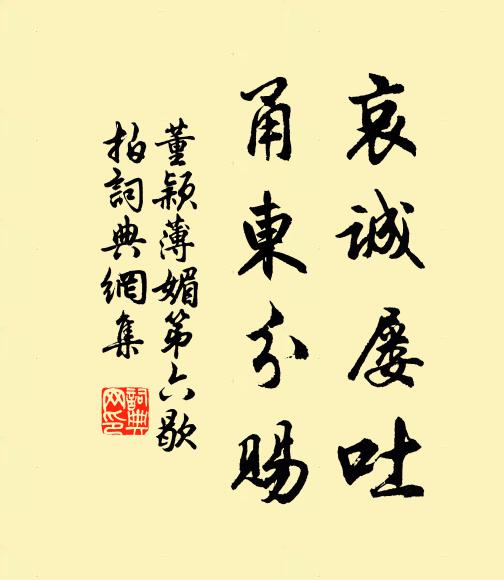 哀誠屡吐
甬東分賜
董穎薄媚第六歇
拍詞典網集
詞典
网印